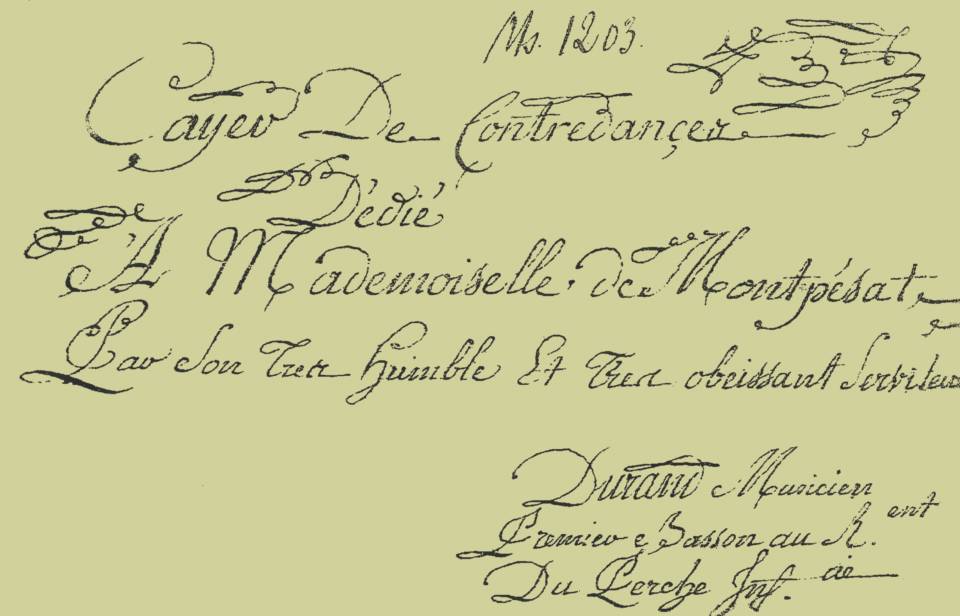 Ms. 1203.
Cayer De Contredançes
Dédié
A Mademoiselle de Montpésat,
Par Son Tres humble Et Tres obeissant Serviteur
Durand Musicien
Premier Basson au R.ent
Du Perche Inf.aie